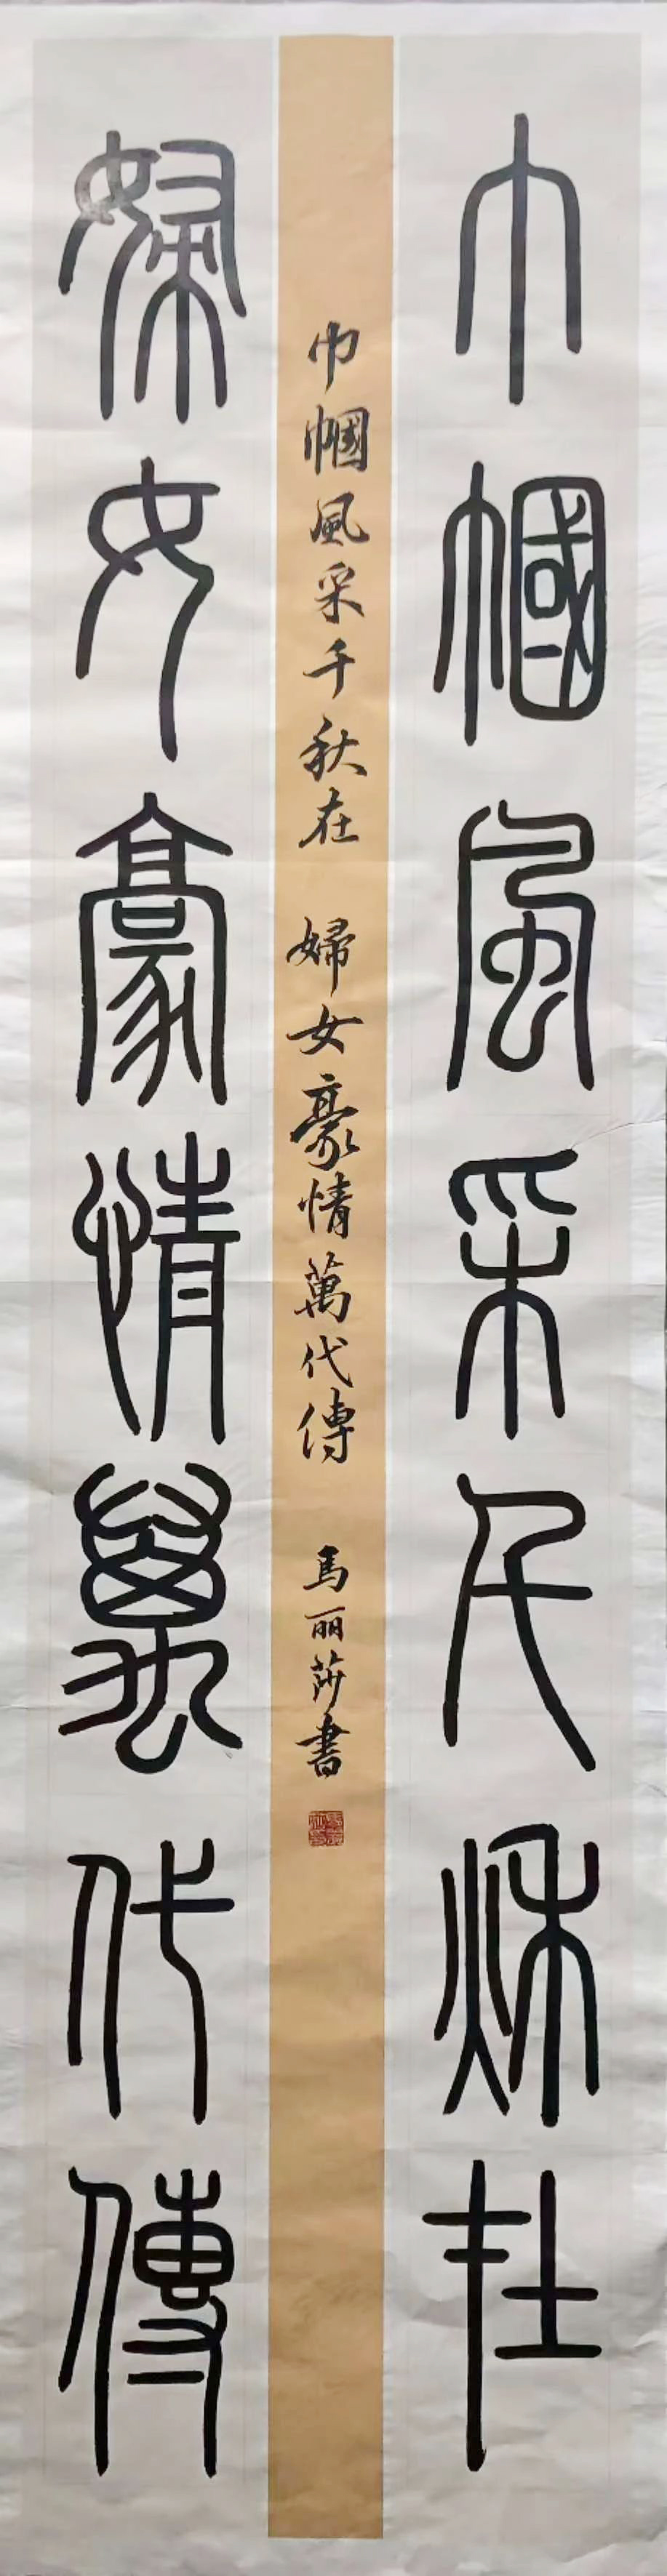 巾幗風采千秋在
巾幗風采千秋在 婦女豪情萬代傳 馬丽莎書
婦女豪情萬代傳